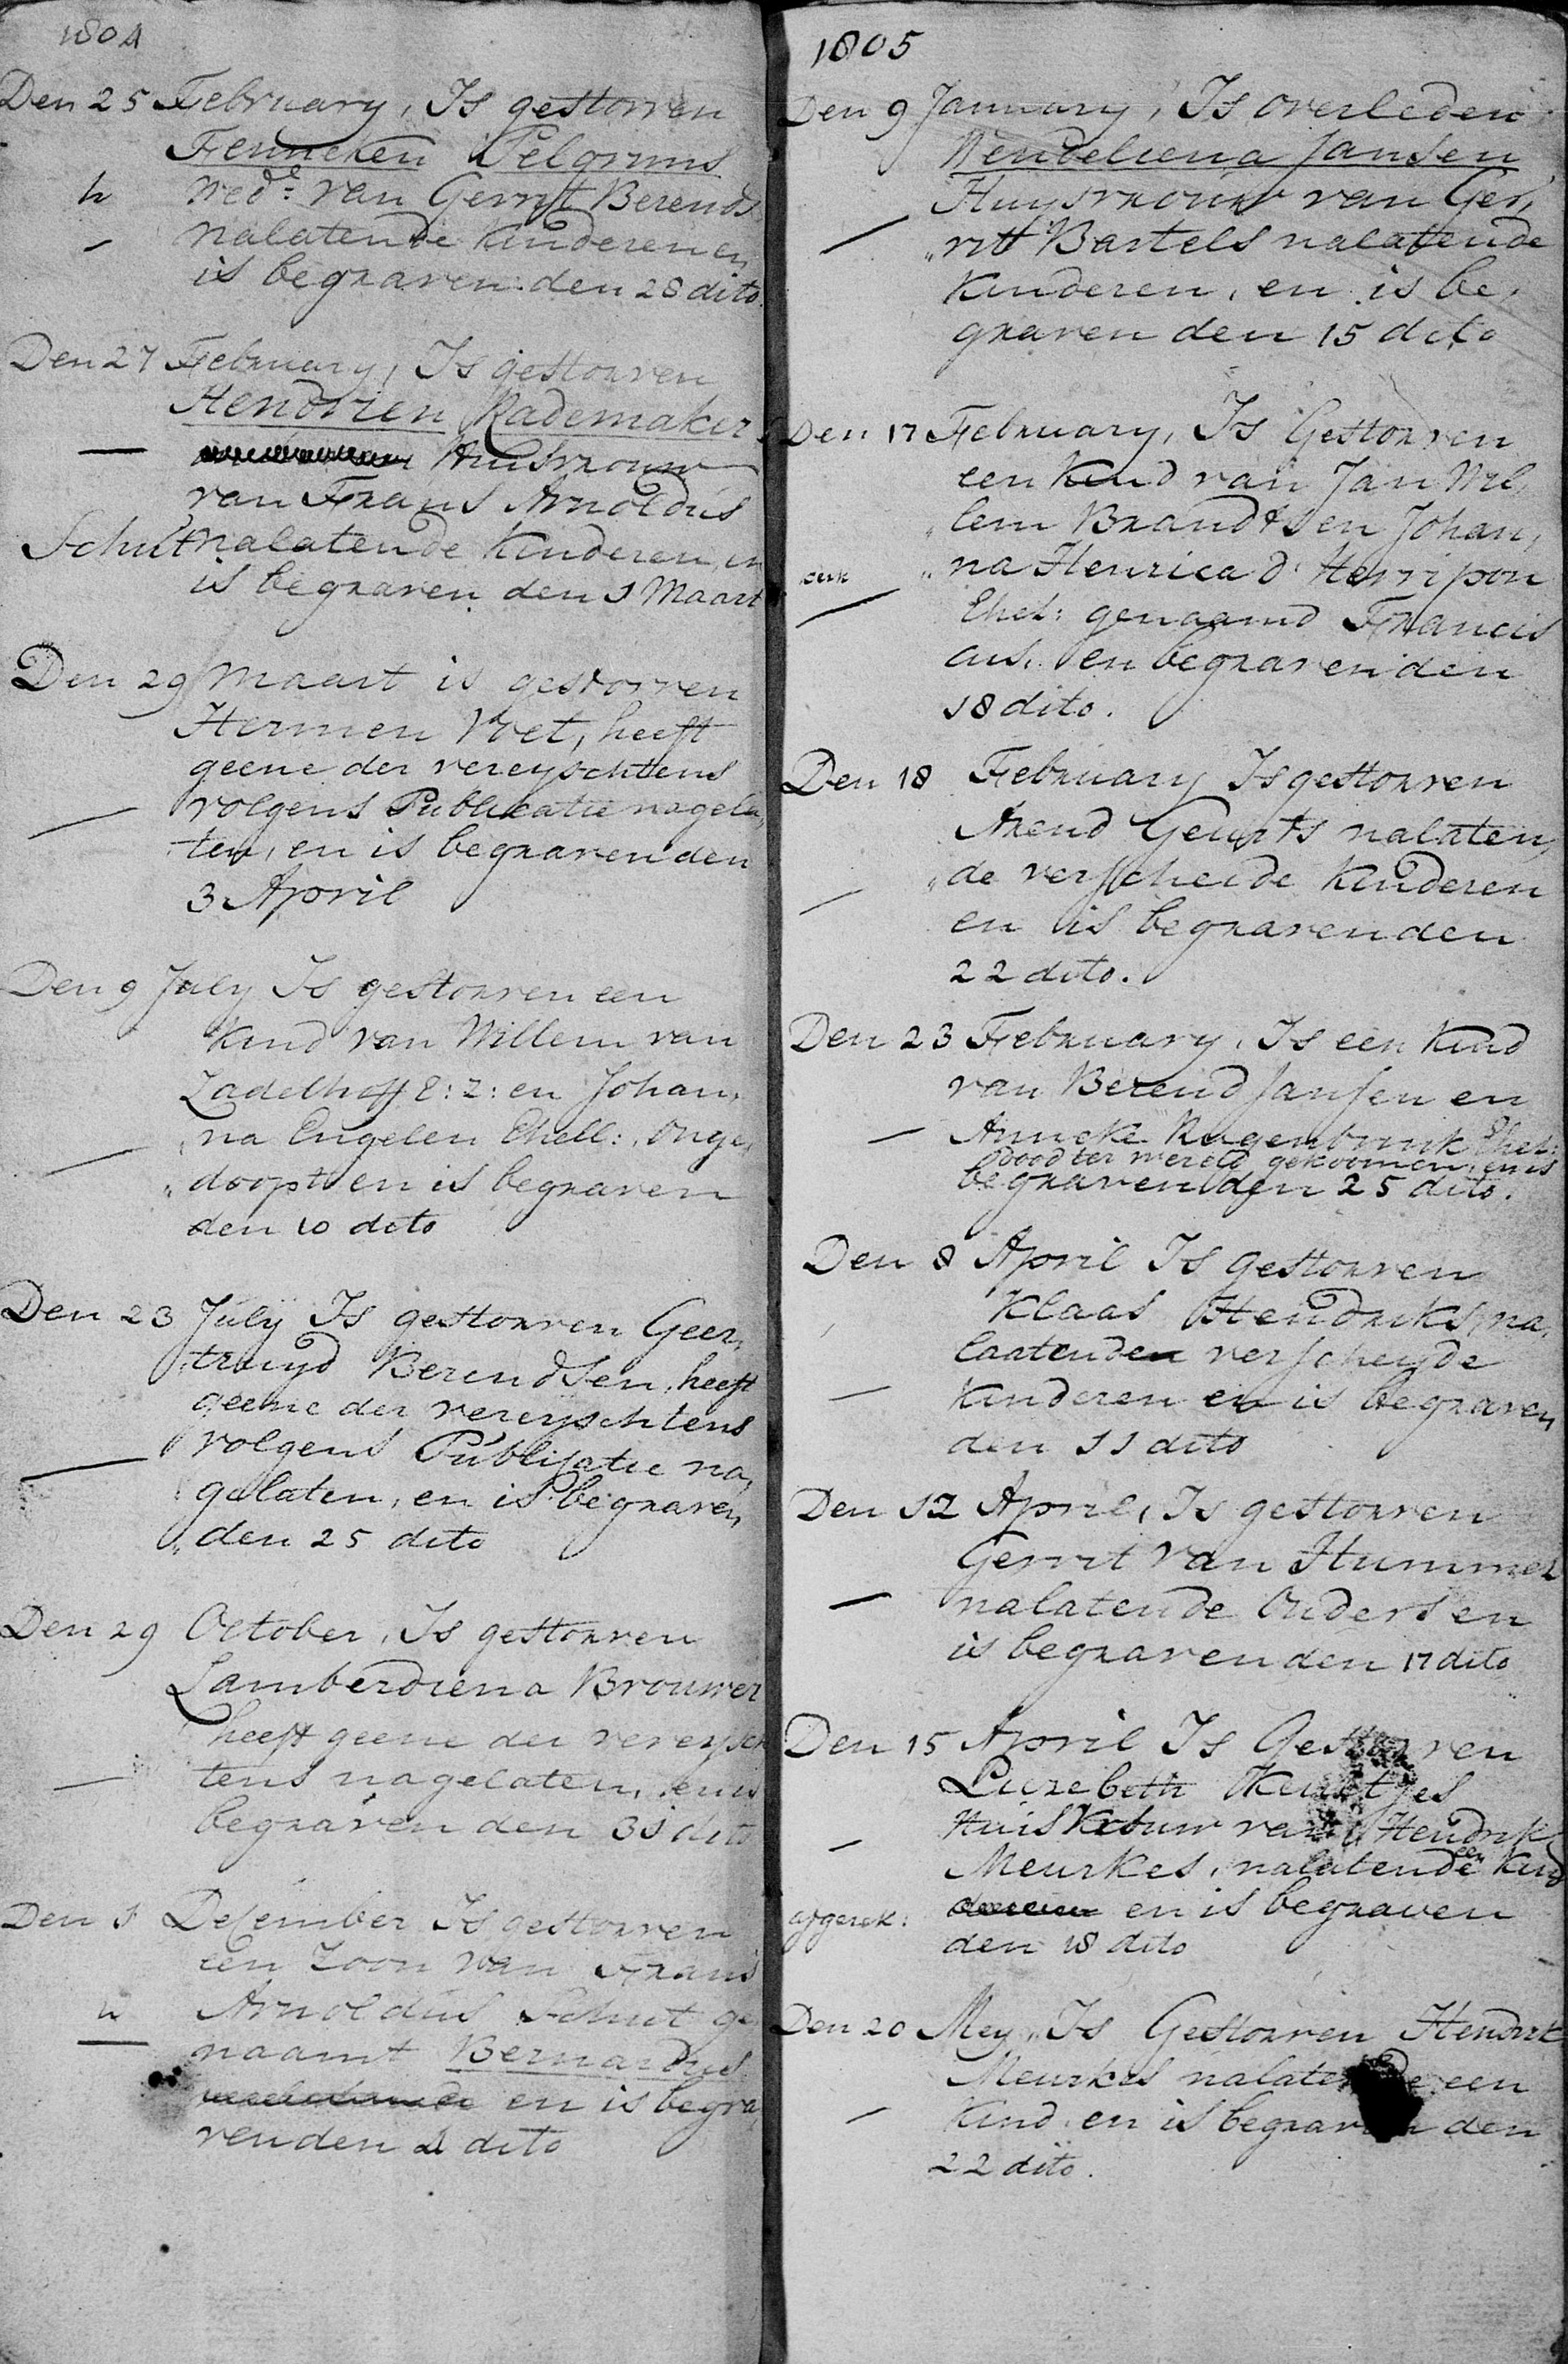 1804
Den 25 February, Is gestorven
Fenneken Pelgrums
h wede: van Gerrit Berends
nalatende kinderen en
is begraven den 28 dito
Den 27 February, Is gestorven
Hendrien Rademaker
Huisvrouw
van Frans Arnoldus
Schut nalatende kinderen, en
is begraven den 1 Maart
Den 29 Maart is gestorven
Hermen Voet, heeft
geene der vereyschtens
volgens Publicatie nagela„
ten, en is begraven den
3 April
Den 9 July Is gestorven een
kind van Willem van
Zadelhoff E: Z: en Johan„
na Engelen Ehell: onge„
„doopt en is begraven
den 10 dito
Den 23 July Is gestorven Geer„
truyd Berendsen, heeft
geene der vereyschtens
volgens Publisatie na„
gelaten, en is begraven
„den 25 dito
Den 29 October, Is gestorven
Lamberdiena Brouwer
heeft geene der vereysch
tens nagelaten, en is
begraven den 31 dito
Den 1 Desember Is gestorven
een Zoon van Frans
Arnoldus Schut ge
naamt Bernardus
en is begra
ven den 4 dito
1805
Den 9 January, Is overleden
Wendeliena Jansen
Huysvrouw van Ger„
„ritt Bartels nalatende
Kinderen, en is be„
graven den 15 dito
Den 17 February, Is Gestorven
een Kind van Jan Wil„
„lem Brandts en Johan„
„na Henrica d' Herripon
Ehel: genaamd Francis
cus, en begraven den
18 dito.
Den 18 February Is gestorven
Arend Geurts nalaten„
„de verscheide Kinderen
en is begraven den
22 dito.
Den 23 February, Is een Kind
van Berend Jansen en
Anneke Rugenbrink Ehel:
dood ter wereld gekoomen, en is
begraven den 25 dito.
Den 8 April Is gestorven
Klaas Hendriks, na„
laatenden verscheyde
Kinderen en is begraven
den 11 dito
Den 12 April, Is gestorven
Gerrit van Hummel
nalatende Ouders en
is begraven den 17 dito
Den 15 April Is Gestorven
Luzebeth
Huisvrouw van Hendrik
Meurkes, nalatende een Kind
afgerek: en is begraven
den 18 dito
Den 20 Mey, Is Gestorven Hendrik
Meurkes nalatende een
Kind en is begraven den
22 dito.